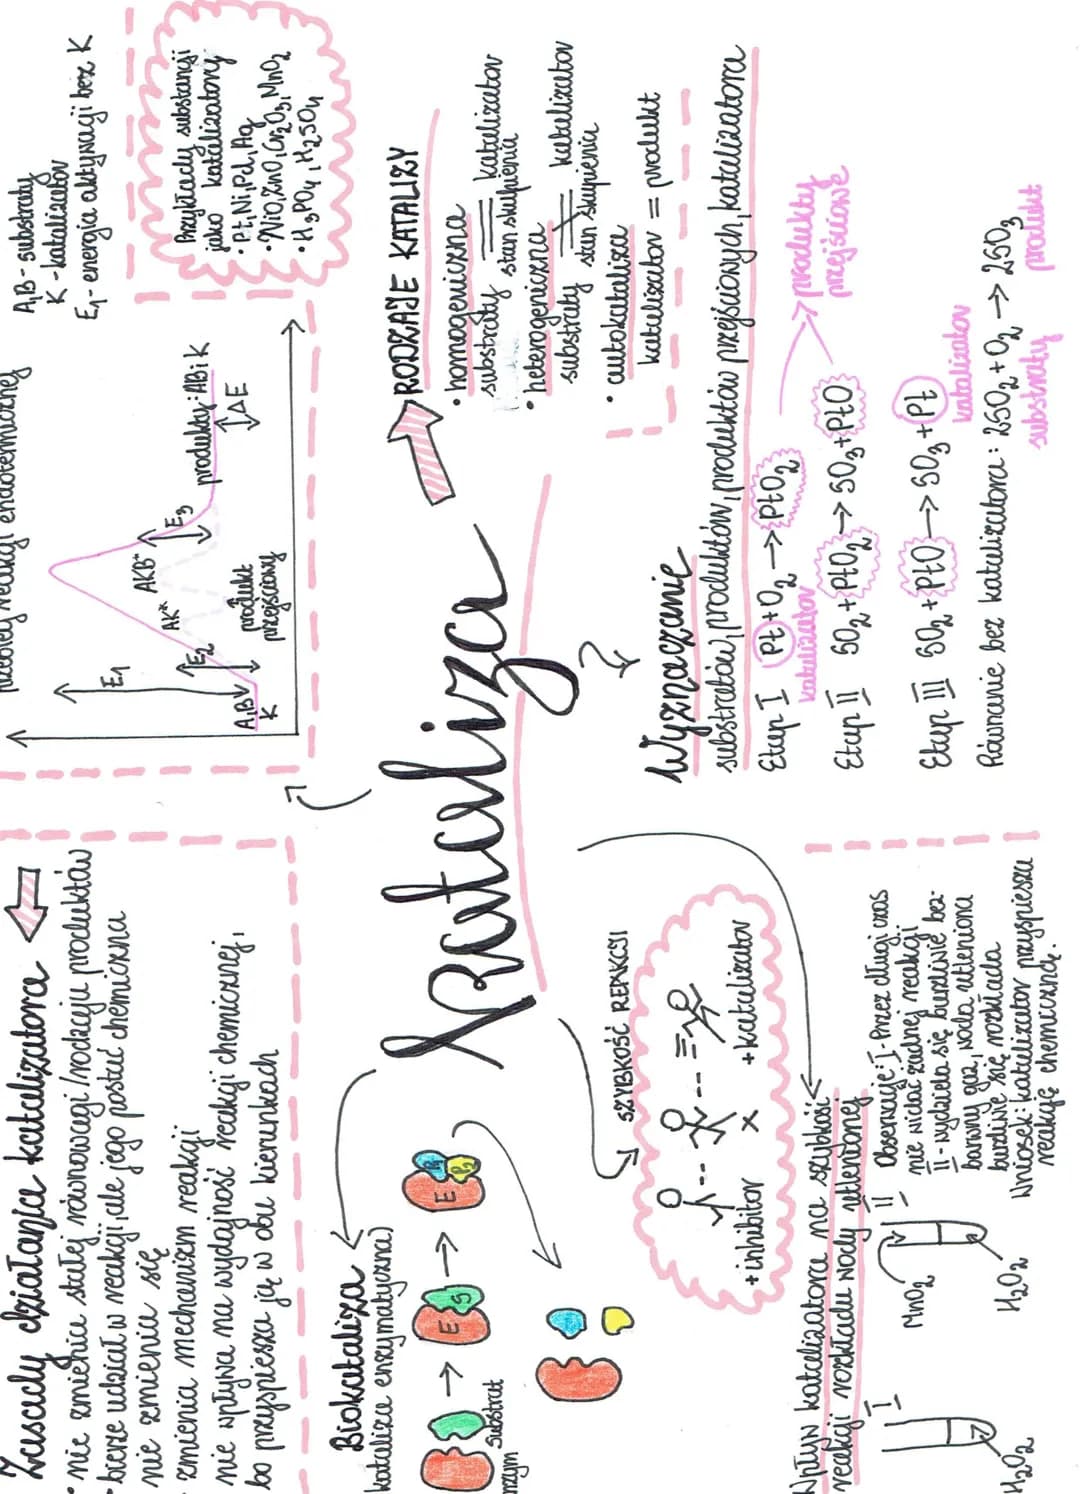 Zasady działania katalizatora
• nie zmienia stałej równowagi/rodzaju produktów
• bierze udział w reakcji, ale jego postać chemiczna
nie zmienia się
• zmienia mechanizm reakcji
nie wpływa na wydajność reakcji chemicznej,
bo przyspiesza ją w obu kierunkach
reakcji endotermicznej
E₁
A,B
K
E₂
AK*
AKB*
E₃
produkt
przejściowy
produkty: AB i K
ΔE
A,B - substraty
K - katalizator
E₁ - energia aktywacji bez K
Przykłady substancji
jako katalizatory
• Pt, Ni, Pd, Ag
• NiO, ZnO, Cr₂O₃, MnO₂
• H₃PO₄, H₂SO₄
Kataliza
Biokataliza
(kataliza enzymatyczna)
E
E
S
P₁
P₂
substrat
SZYBKOŚĆ REAKCJI
+inhibitor
x
+katalizator
RODZAJE KATALIZY
• homogeniczna
substraty = katalizator
stan skupienia
• heterogeniczna
substraty ≠ katalizator
stan skupienia
• autokataliza
katalizator = produkt
Wyznaczanie
substratów, produktów, produktów przejściowych, katalizatora
Etap I Pt + O₂ → PtO₂
katalizator
produkty
przejściowe
Etap II SO₂ + PtO₂ → SO₃ + PtO
Etap III SO₂ + PtO → SO₃ + Pt
katalizator
Równanie bez katalizatora: 2SO₂ + O₂ → 2SO₃
substraty
produkt
Wpływ katalizatora na szybkość
reakcji rozkładu wody utlenionej
I
H₂O₂
II
MnO₂
H₂O₂
Obserwacje: I - Przez długi czas
nie widać żadnej reakcji
II - wydziela się burzliwie bez-
barwny gaz, woda utleniona
burzliwie się rozkłada
Wniosek: katalizator przyspiesza
reakcję chemiczną.